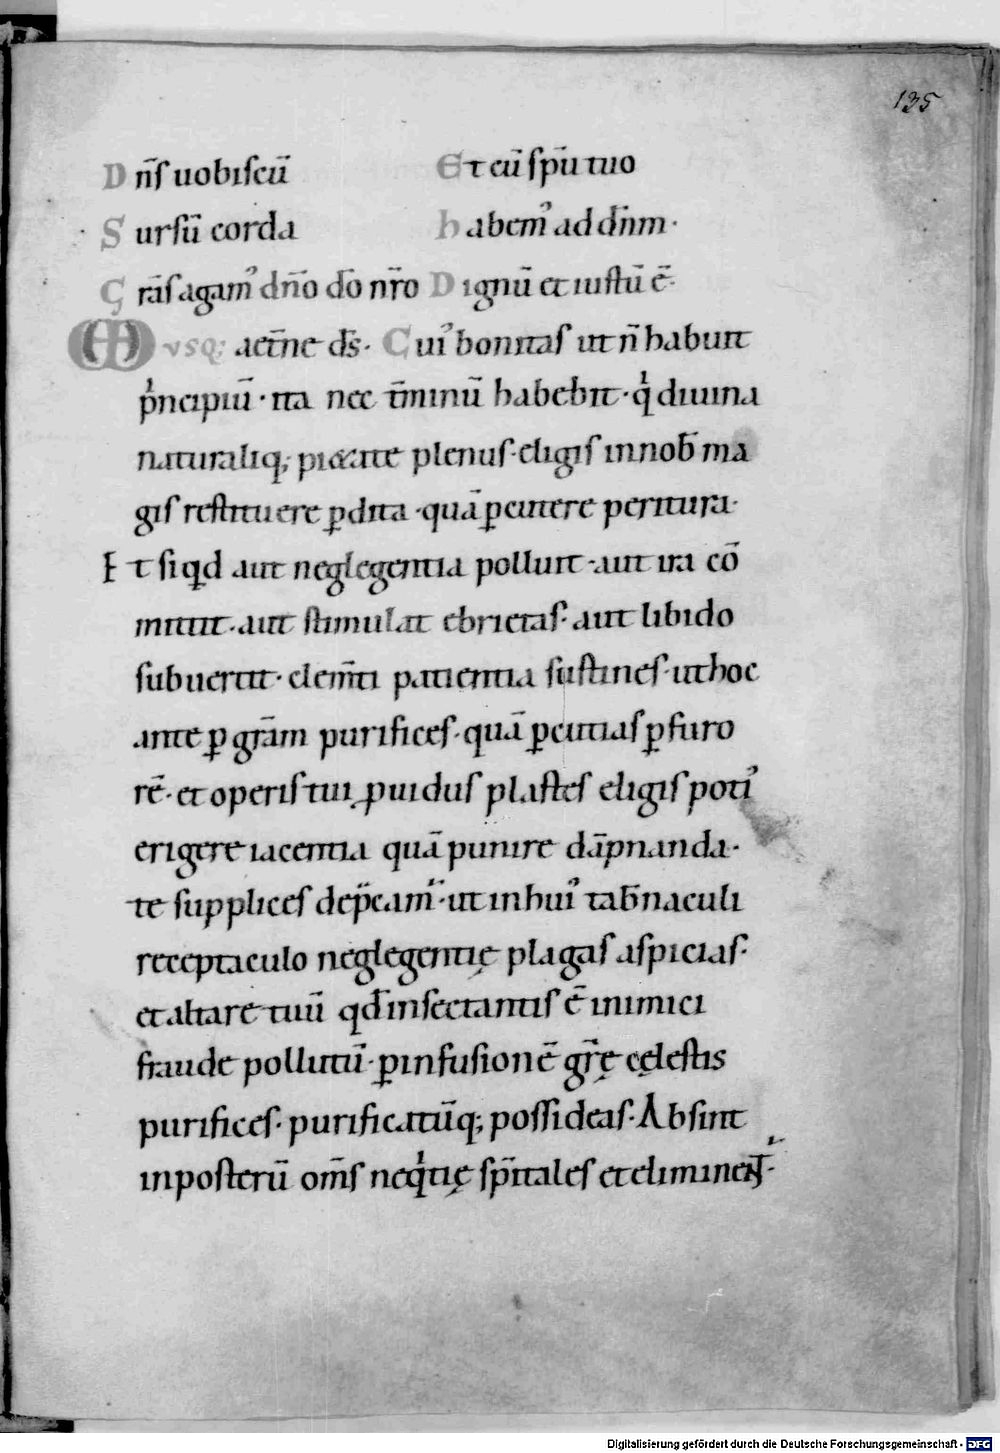 135
Dn̄s uobiscū Et cū sp̄u tuo
Sursū corda habem᾽ ad dn̄m·
Gr̄as agam᾽ dn̄o dō nr̄o Dignū et iustū ē·
VD usq; aet̄ne ds̄· Cui᾽ bonitas ut n̄ habuit
p̍ncipiū· ita nec t̄minū habebit· q̍ diuina
naturaliq; pietate plenus· eligis in nob̄ ma
gis restituere ꝑdita· quā ꝑcutere peritura·
Et siqd aut neglegentia polluit· aut ira cō
mittit· aut stimulat ebrietas· aut libido
subuertit· clem̄ti patientia sustines· ut hoc
ante ꝑ grām purifices· quā ꝑcutias ꝑ furo
rē· et operis tui ꝓuidus plastes eligis poti᾽
erigere iacentia quā punire dāpnanda·
te supplices dep̄cam᾽· ut in hui᾽ tab̄naculi
receptaculo neglegentię plagas aspicias·
et altare tuū qd̄ insectantis ē inimici
fraude pollutū· ꝑ infusionē gr̄ę cęlestis
purifices· purificatūq; possideas· Absint
inposterū om̄s neq̍tię sp̄itales et eliminet᾽·
Digitalisierung gefördert durch die Deutsche Forschungsgemeinschaft - DFG